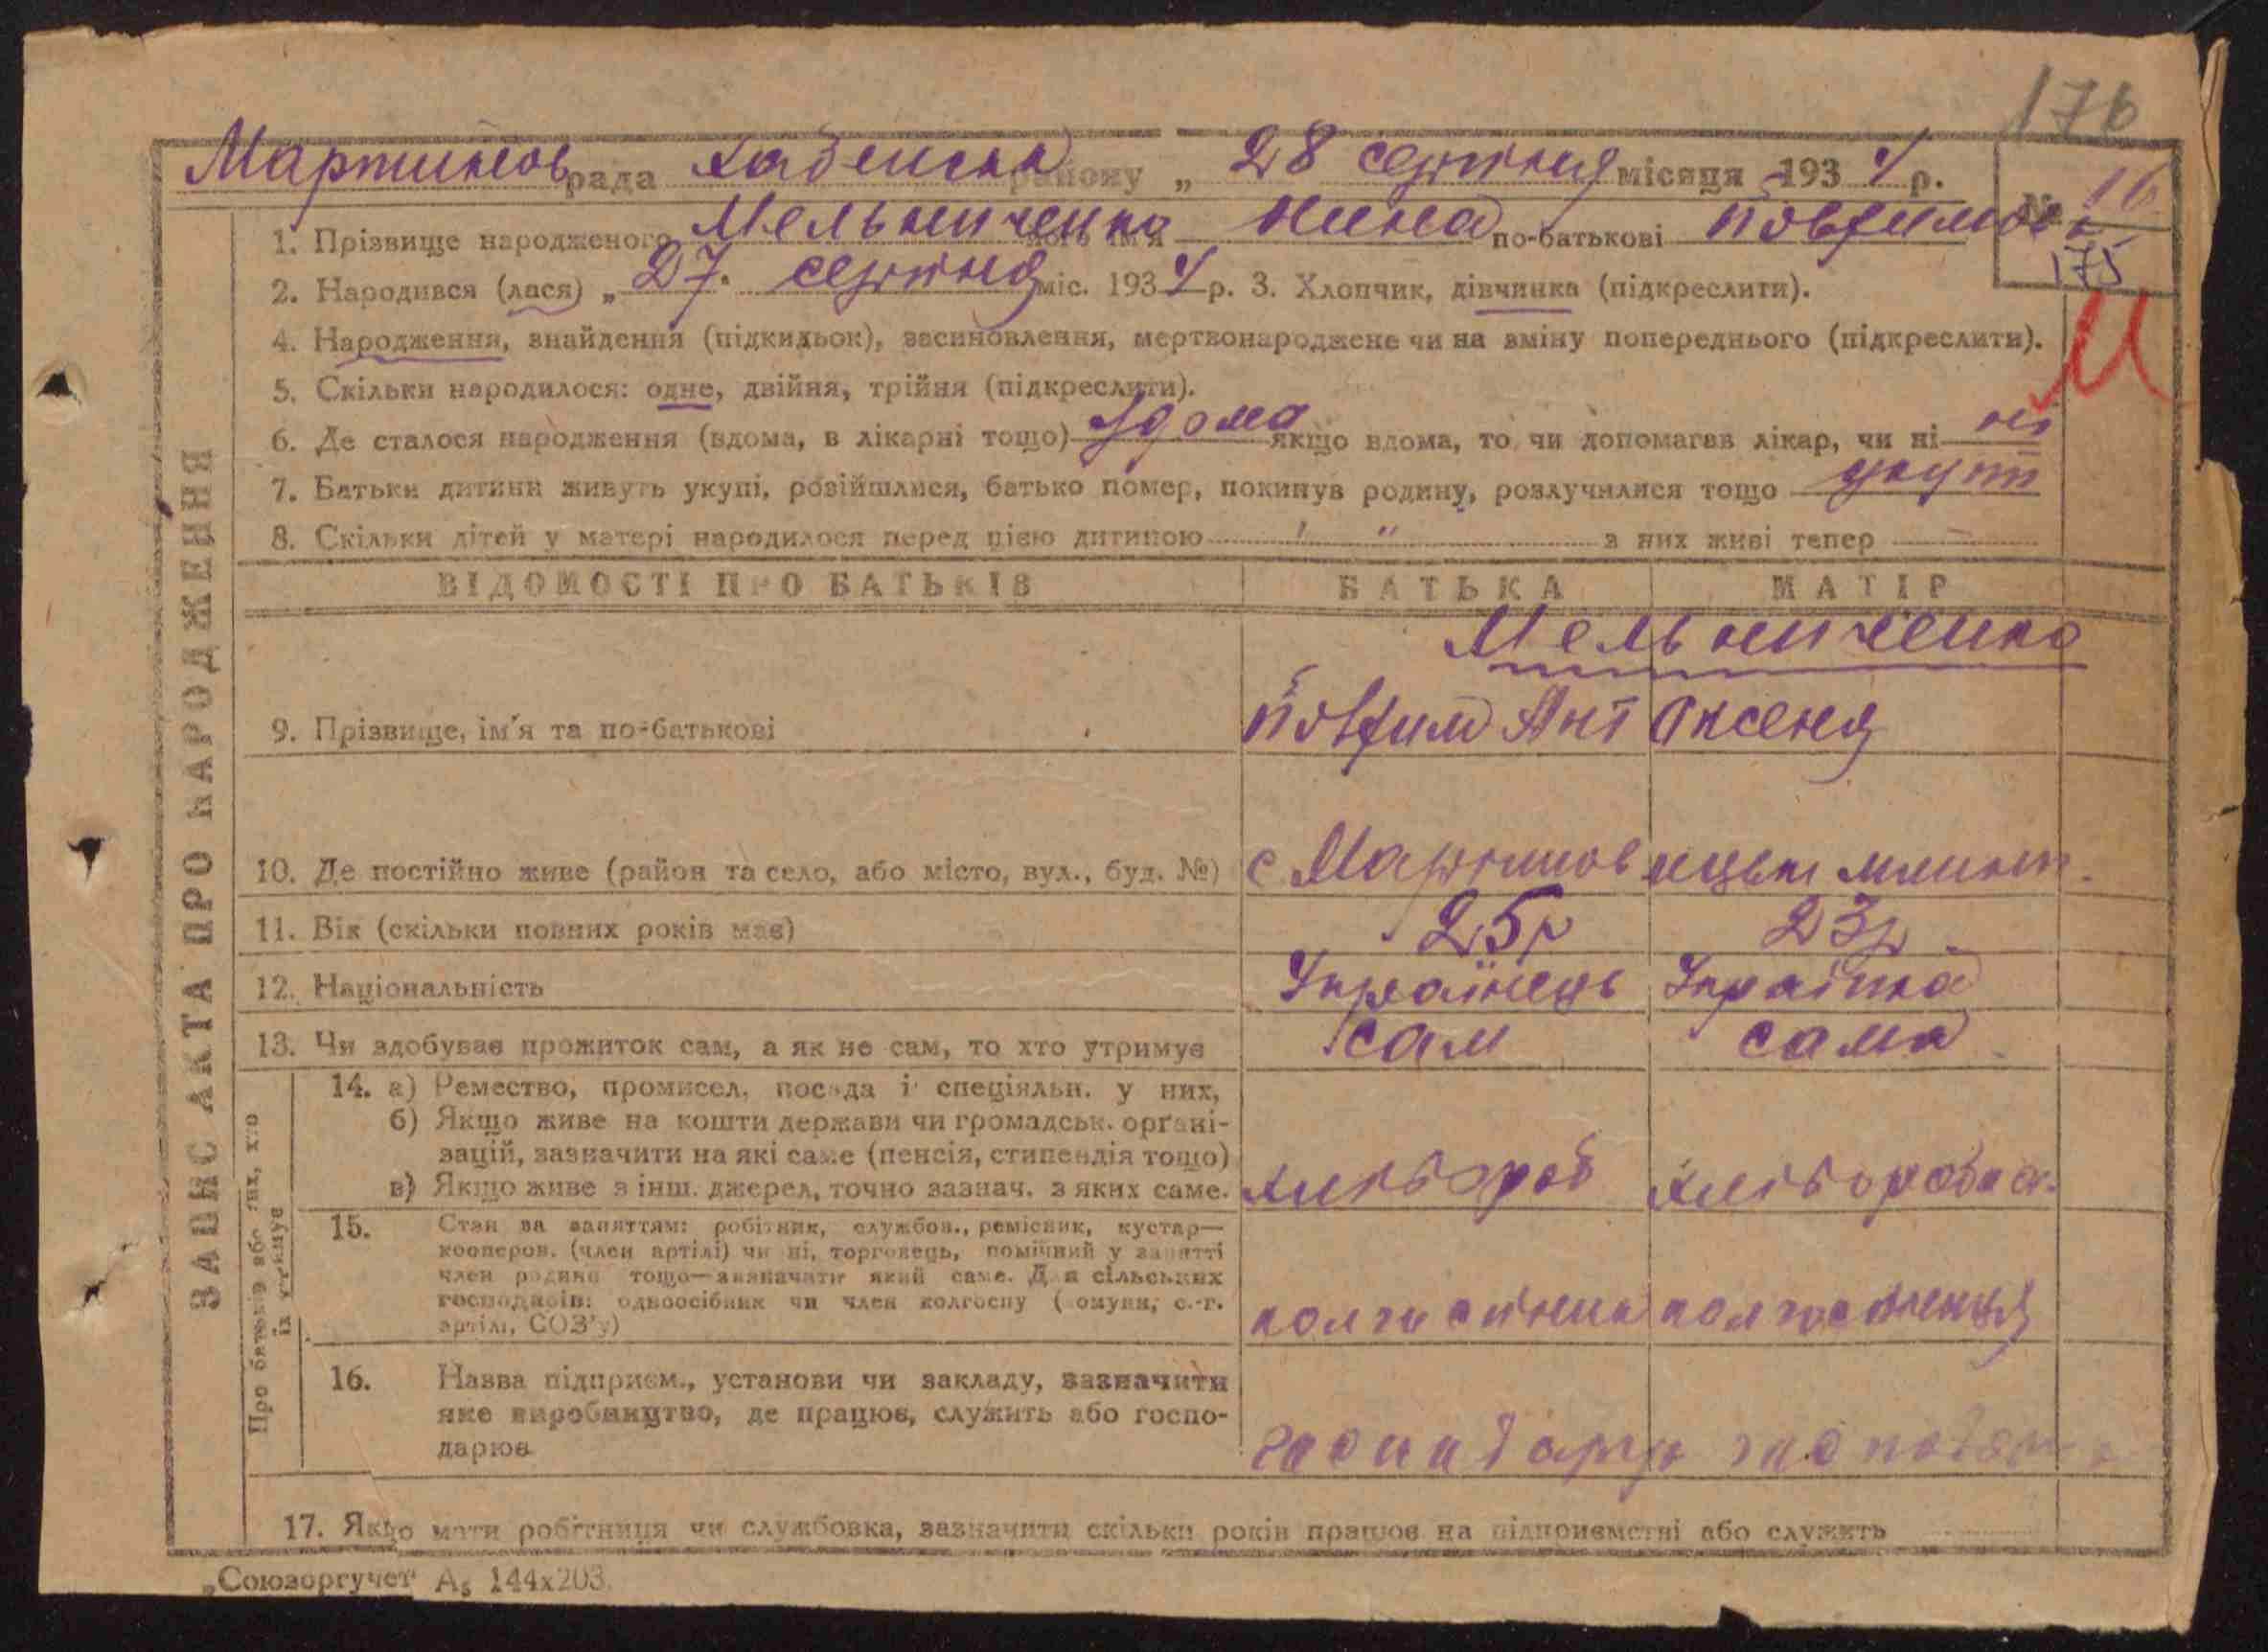 176
Мартинов рада Хабенськ району „ 28 серпня місяця 1934 р. № 16
1. Прізвище народженого Мельниченко його ім'я Нина по-батькові
175
2. Народився (лася) „ 27. серпня міс. 1934 р. 3. Хлопчик, дівчинка (підкреслити).
4. Народження, знайдення (підкидьок), засиновлення, мертвонароджене чи на вміну попереднього (підкреслити).
5. Скільки народилося: одне, двійня, трійня (підкреслити).
6. Де сталося народження (вдома, в лікарні тощо) удома якщо вдома, то чи допомагав лікар, чи ні ні
7. Батьки дитини живуть укупі, розійшлися, батько помер, покинув родину, розлучилися тощо укупі
8. Скільки дітей у матері народилося перед цією дитиною з них живі тепер —
ЗАПИС АКТА ПРО НАРОДЖЕННЯ
ВІДОМОСТІ ПРО БАТЬКІВ БАТЬКА МАТІР
Мельниченко
9. Прізвище, ім'я та по-батькові Ант Оксеня
10. Де постійно живе (район та село, або місто, вул., буд. №) с Мартинов
11. Вік (скільки повних років має) 25р 23р
12. Національність Українець Українка
13. Чи здобуває прожиток сам, а як не сам, то хто утримує сам сама
Про батьків або них, хто їх утримує
14. а) Ремество, промисел, посада і спеціяльн. у них,
б) Якщо живе на кошти держави чи громадськ. орґані-
зацій, зазначити на які саме (пенсія, стипендія тощо)
в) Якщо живе з інш. джерел, точно зазнач. з яких саме. хлібороб хліборобка
15. Стан за заняттям: робітник, службов., ремісник, кустар—
кооперов. (член артілі) чи ні, торговець, помічний у занятті
член родини тощо—зазначити який саме. Для сільських
господарів: одноосібник чи член колгоспу (комуни, с.-г.
артілі, СОЗ'у)
16. Назва підприєм., установи чи закладу, зазначити
яке виробництво, де працює, служить або госпо-
дарює
17. Якщо мати робітниця чи службовка, зазначити скільки років працює на підприємстві або служить
„Союзоргучет" А₅ 144х203.